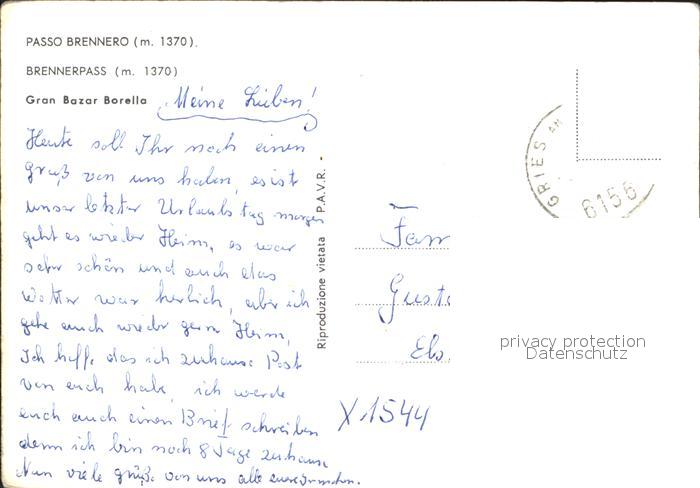 PASSO BRENNERO (m. 1370).
BRENNERPASS (m. 1370)
Gran Bazar Borella
Meine Lieben!
Heute sollt Ihr noch einen
gruß von uns haben, es ist
unser letzter Urlaubstag morgen
geht es wieder Heim, es war
sehr schön und auch das
Wetter war herlich, aber ich
gehe auch wieder gern Heim,
Ich hoffe das ich zuhause Post
von euch habe, ich werde
euch auch einen Brief schreiben
denn ich bin noch 8 Tage zuhause
Nun viele grüße von uns alle
Riproduzione vietata - P.A.V.R.
GRIES AM
6156
Fam
Gust
Eb.
X 1544
privacy protection
Datenschutz